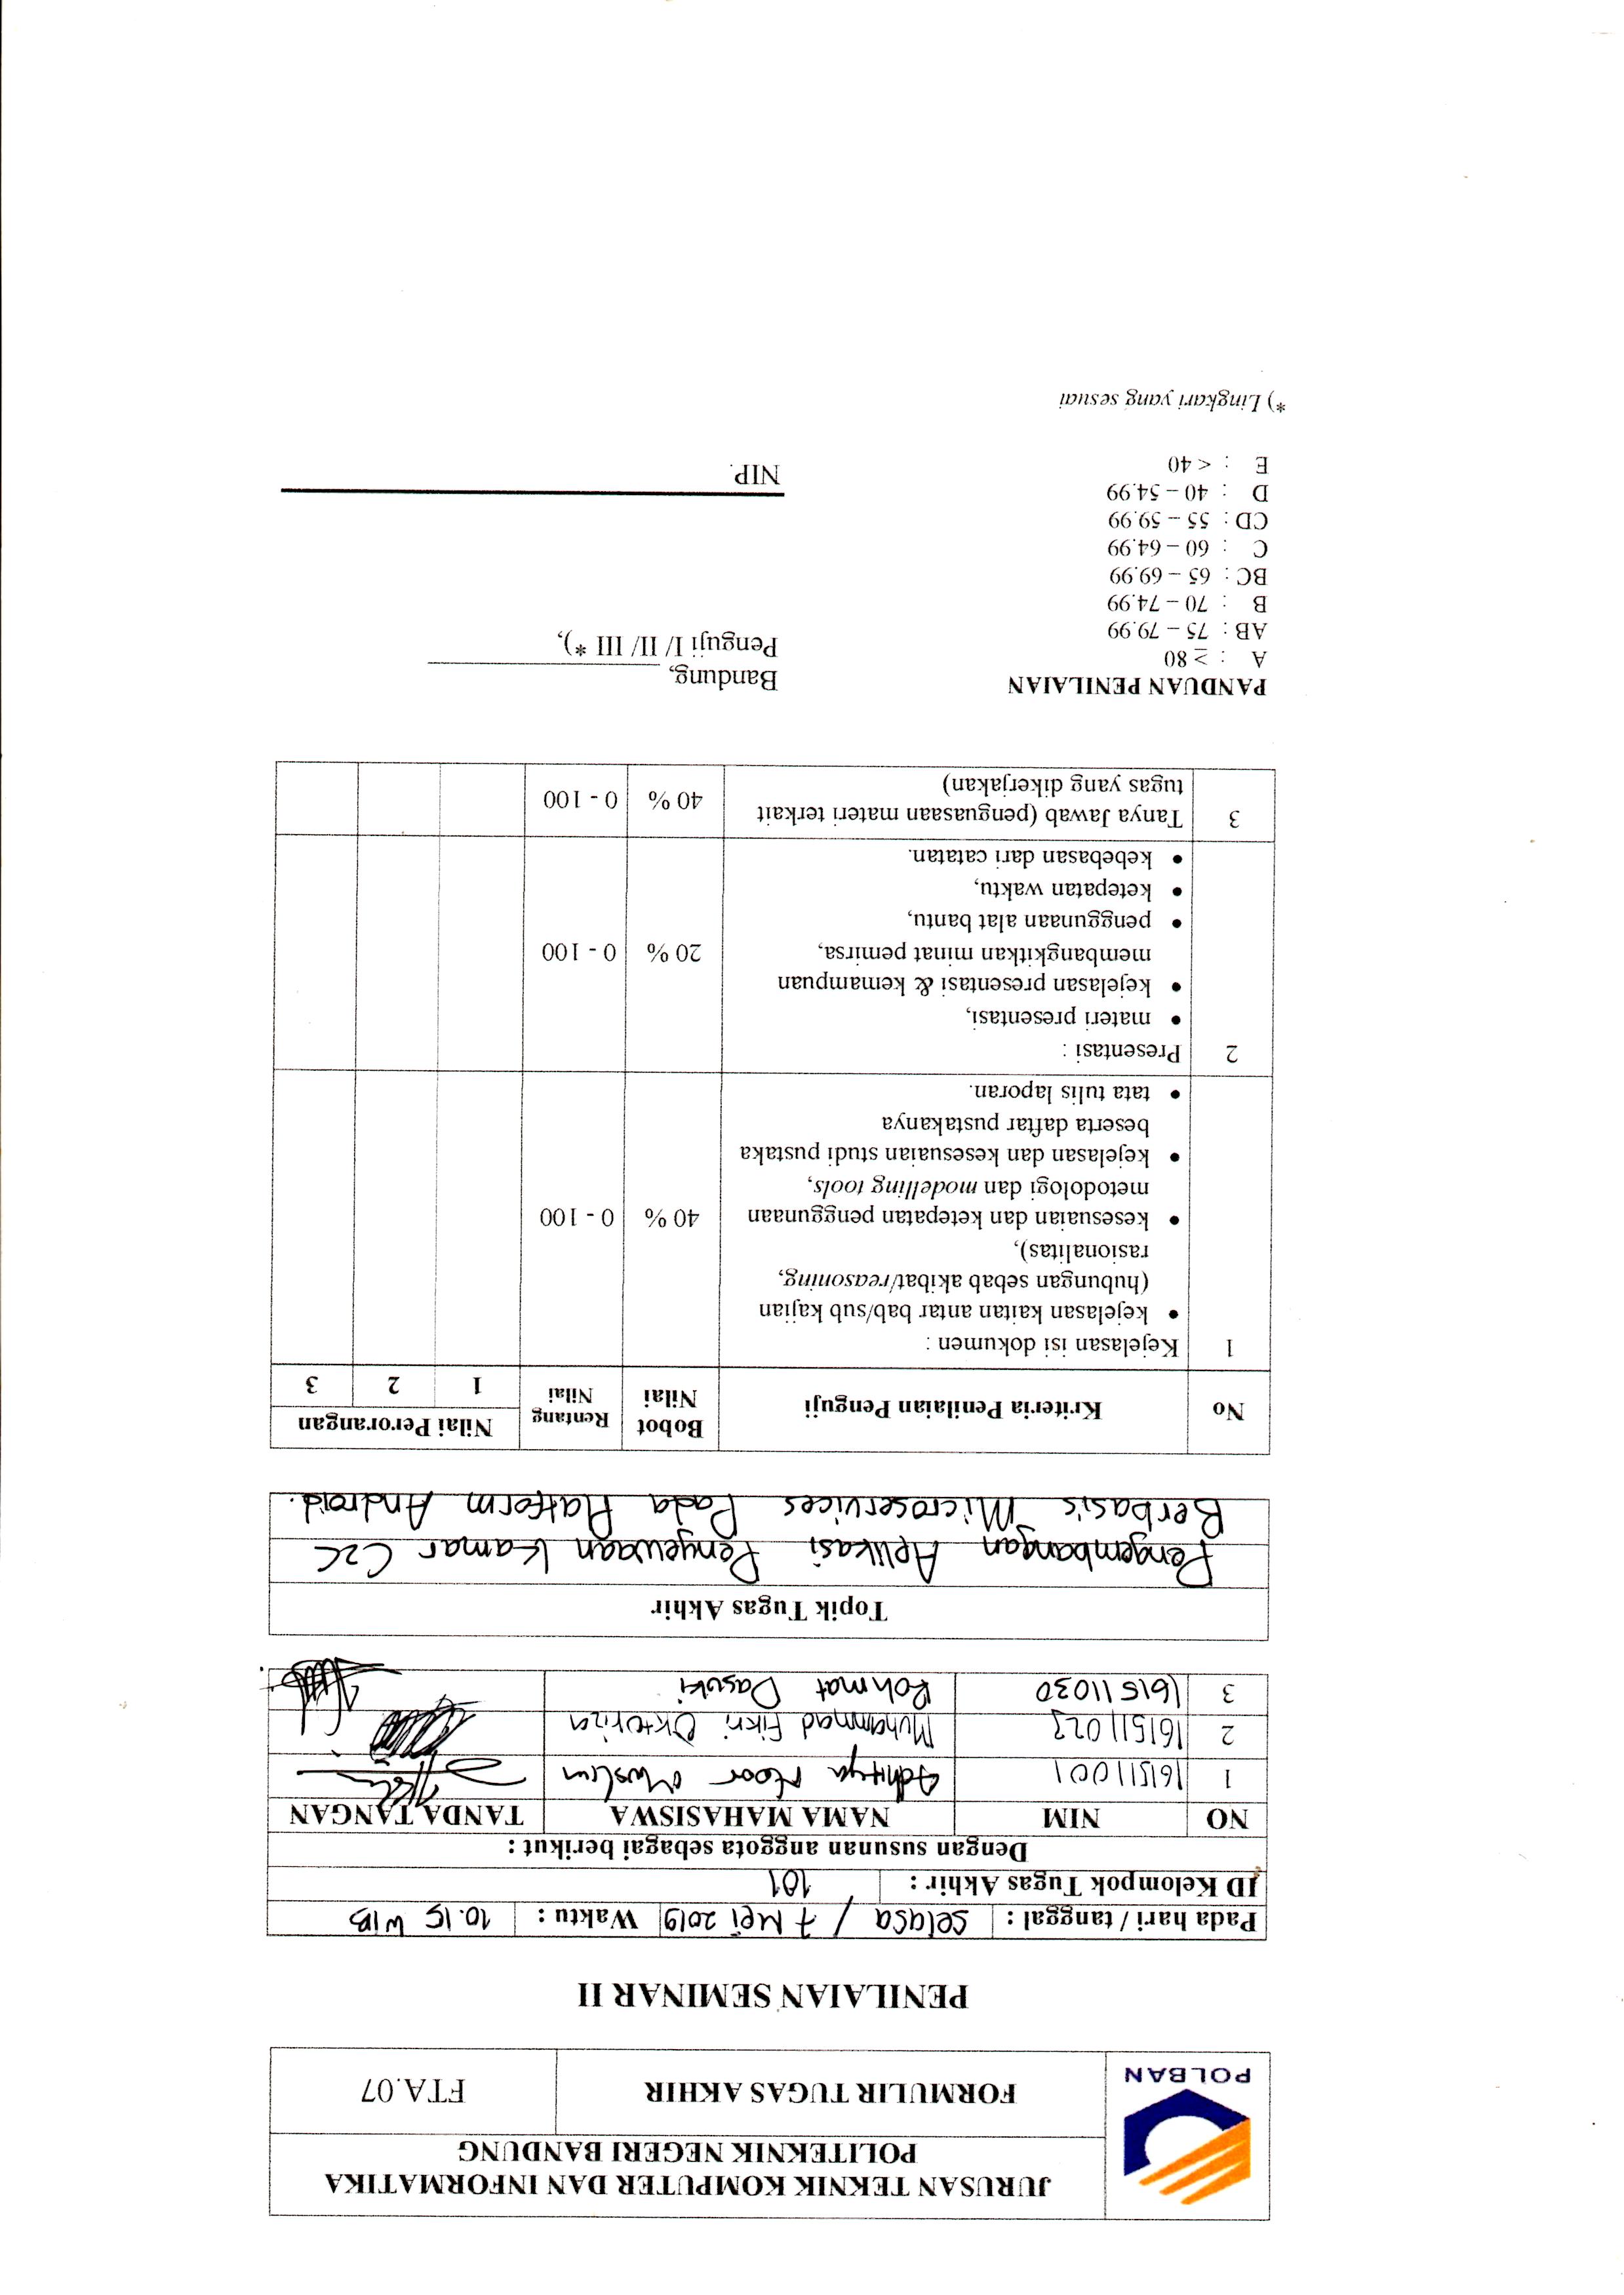 POLBAN
JURUSAN TEKNIK KOMPUTER DAN INFORMATIKA
POLITEKNIK NEGERI BANDUNG
FORMULIR TUGAS AKHIR FTA.07
PENILAIAN SEMINAR II
Pada hari / tanggal : Selasa / 7 Mei 2019 Waktu : 10.15 WIB
ID Kelompok Tugas Akhir : 101
Dengan susunan anggota sebagai berikut :
NO NIM NAMA MAHASISWA TANDA TANGAN
1 161511001 Adhitya Noor Muslim
2 161511022 Muhammad Fikri Oktoriza
3 161511030 Rohmat Dasuki
Topik Tugas Akhir
Pengembangan Aplikasi Penyewaan Kamar C2C
Berbasis Microservices Pada Platform Android.
No Kriteria Penilaian Penguji Bobot Nilai Rentang Nilai Nilai Perorangan
1 2 3
1 Kejelasan isi dokumen :
• kejelasan kaitan antar bab/sub kajian
(hubungan sebab akibat/reasoning,
rasionalitas),
• kesesuaian dan ketepatan penggunaan 40 % 0 - 100
metodologi dan modelling tools,
• kejelasan dan kesesuaian studi pustaka
beserta daftar pustakanya
• tata tulis laporan.
2 Presentasi :
• materi presentasi,
• kejelasan presentasi & kemampuan
membangkitkan minat pemirsa, 20 % 0 - 100
• penggunaan alat bantu,
• ketepatan waktu,
• kebebasan dari catatan.
3 Tanya Jawab (penguasaan materi terkait 40 % 0 - 100
tugas yang dikerjakan)
PANDUAN PENILAIAN
A : ≥ 80
AB : 75 – 79.99
B : 70 – 74.99
BC : 65 – 69.99
C : 60 – 64.99
CD : 55 – 59.99
D : 40 – 54.99
E : < 40
Bandung,
Penguji I/ II/ III *),
NIP.
*) Lingkari yang sesuai